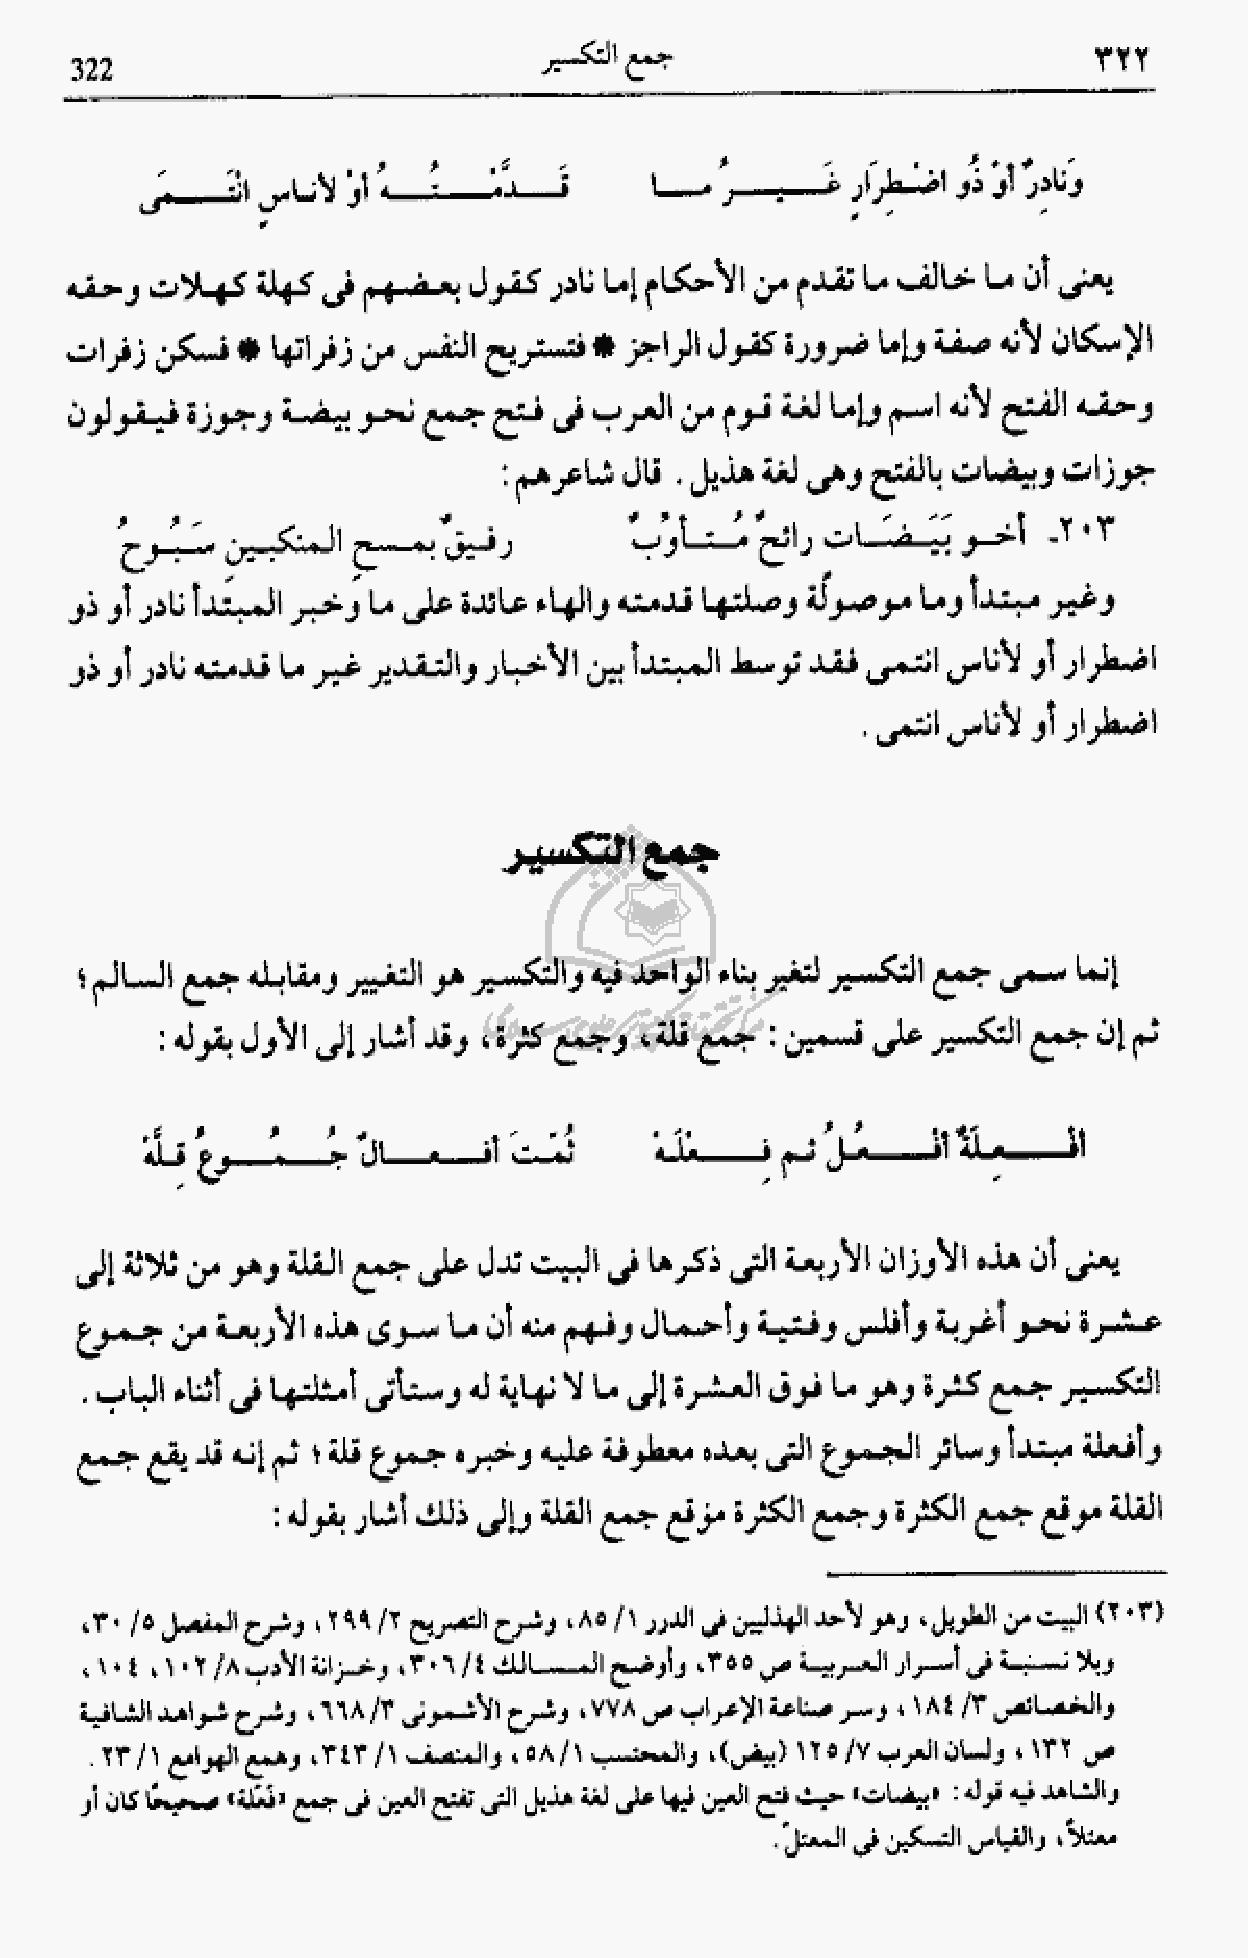 ٣٢٢
جمع التكسير
322
وَنَادِرٌ أَوْ ذُو اضْطِرَارٍ غَـيـرُ مـا قَـدَّمْـتُـهُ أوْ لأناسٍ انْتَـمَى
يعنى أن ما خالف ما تقدم من الأحكام إما نادر كقول بعضهم فى كهلة كهلات وحقه
الإسكان لأنه صفة وإما ضرورة كقول الراجز * فتستريح النفس من زفراتها * فسكن زفرات
وحقه الفتح لأنه اسم وإما لغة قوم من العرب فى فتح جمع نحو بيضة وجوزة فيقولون
جوزات وبيضات بالفتح وهى لغة هذيل . قال شاعرهم :
٢٠٣ـ أخـو بَيَـضَـات رائحٌ مُـتـأوُبٌ رفـيـقٌ بمـسـحِ المنكبـينِ سَـبُـوحُ
وغير مبتدأ وما موصولة وصلتها قدمته والهاء عائدة على ما وخبر المبتدأ نادر أو ذو
اضطرار أو لأناس انتمى فقد توسط المبتدأ بين الأخبار والتقدير غير ما قدمته نادر أو ذو
اضطرار أو لأناس انتمى .
جمع التكسير
إنما سمى جمع التكسير لتغير بناء الواحد فيه والتكسير هو التغيير ومقابله جمع السالم ؛
ثم إن جمع التكسير على قسمين : جمع قلة ، وجمع كثرة ، وقد أشار إلى الأول بقوله :
أفْـعِـلَةٌ أفْـعُـلُ ثـم فِـعْلَـهْ ثُمّـتَ أفـعـالٌ جُـمُـوعُ قِـلَّهْ
يعنى أن هذه الأوزان الأربعة التى ذكرها فى البيت تدل على جمع القلة وهو من ثلاثة إلى
عشرة نحو أغربة وأفلس وفتية وأحمال وفهم منه أن ما سوى هذه الأربعة من جموع
التكسير جمع كثرة وهو ما فوق العشرة إلى ما لا نهاية له وستأتى أمثلتها فى أثناء الباب .
وأفعلة مبتدأ وسائر الجموع التى بعده معطوفة عليه وخبره جموع قلة ؛ ثم إنه قد يقع جمع
القلة موقع جمع الكثرة وجمع الكثرة موقع جمع القلة وإلى ذلك أشار بقوله :
(٢٠٣) البيت من الطويل، وهو لأحد الهذليين فى الدرر ١/ ٨٥، وشرح التصريح ٢/ ٢٩٩، وشرح المفصل ٥/ ٣٠،
وبلا نسبة فى أسرار العربية ص ٣٥٥، وأوضح المسالك ٤/ ٣٠٦، وخزانة الأدب ٨/ ١٠٢، ١٠٤،
والخصائص ٣/ ١٨٤، وسر صناعة الإعراب ص ٧٧٨، وشرح الأشمونى ٣/ ٦٦٨، وشرح شواهد الشافية
ص ١٣٢، ولسان العرب ٧/ ١٢٥ (بيض)، والمحتسب ١/ ٥٨، والمنصف ١/ ٣٤٣، وهمع الهوامع ١/ ٢٣ .
والشاهد فيه قوله : «بيضات» حيث فتح العين فيها على لغة هذيل التى تفتح العين فى جمع «فَعْلَة» صحيحًا كان أو
معتلاً، والقياس التسكين فى المعتلّ.